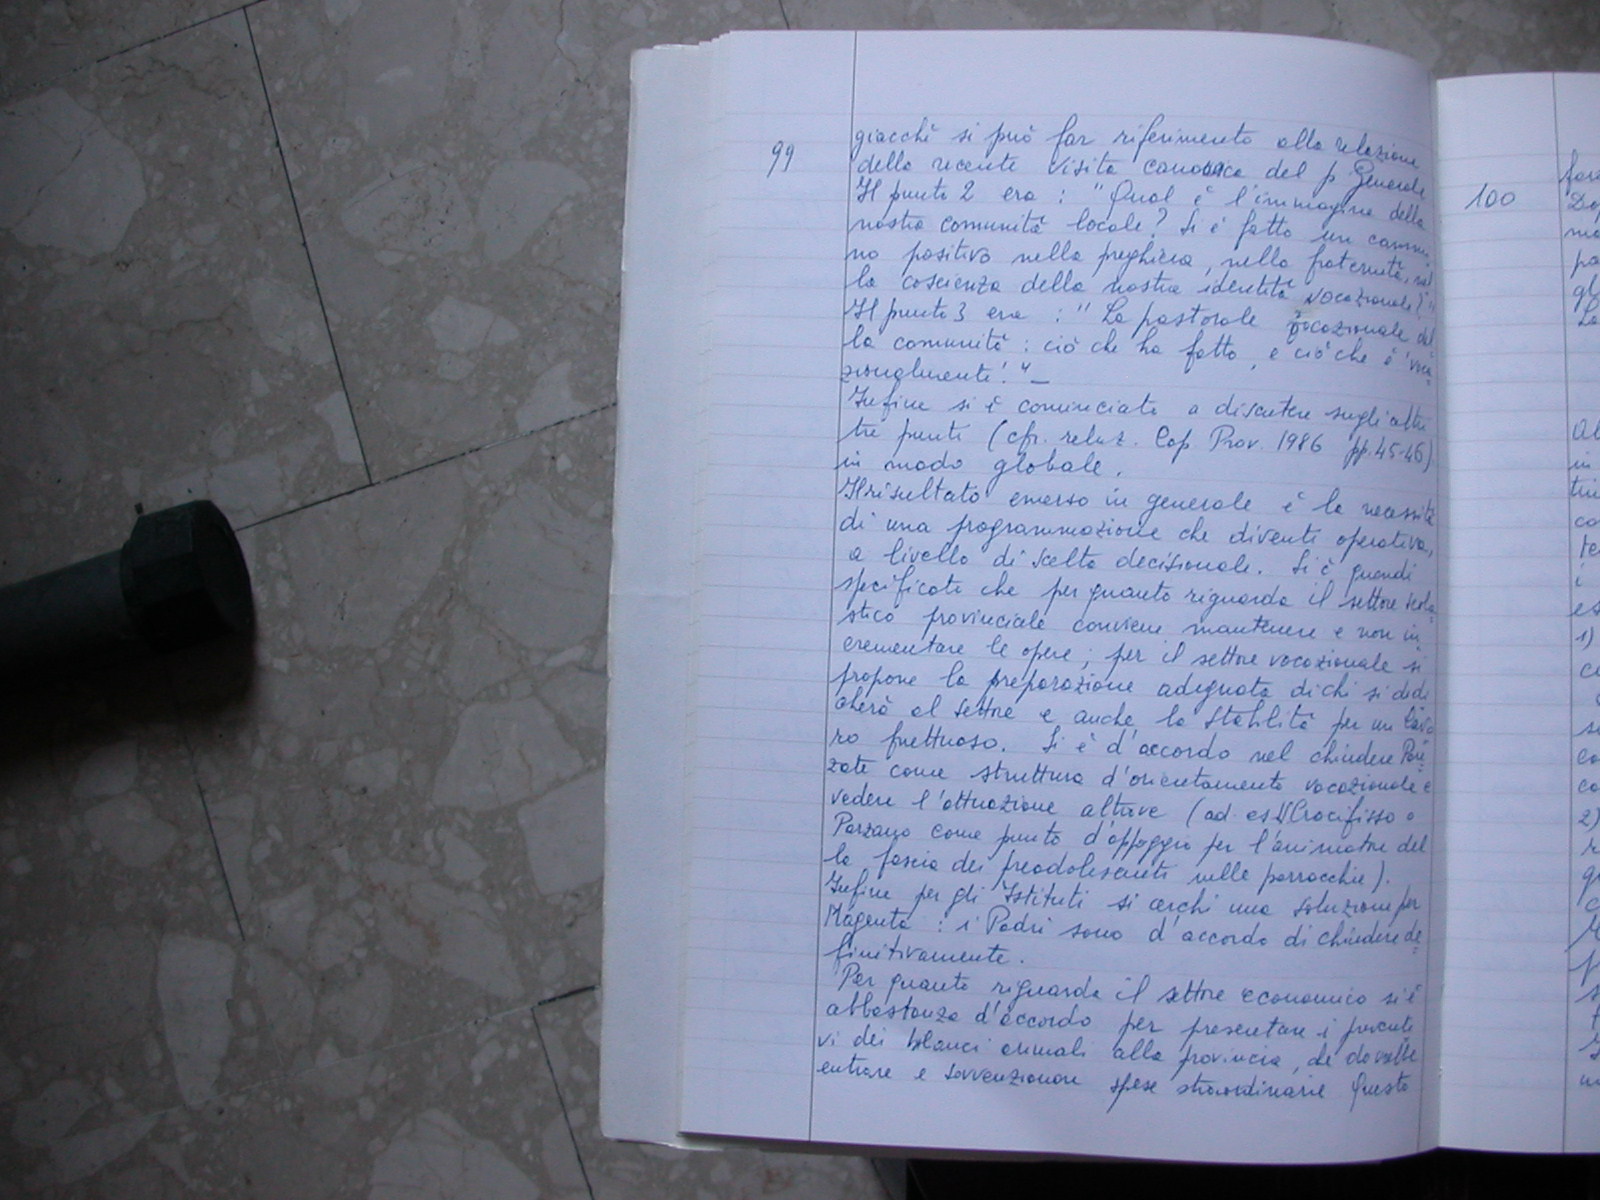 99
giacchè si può far riferimento alla relazione
della recente Visita canonica del p. Generale
Il punto 2 era : " Qual è l'immagine della
nostra comunità locale ? Si è fatto un cammi
no positivo nella preghiera, nella fraternità, nel
la coscienza della nostra identità vocazionale ? "
Il punto 3 era : " La pastorale vocazionale del
la comunità : ciò che ha fatto, e ciò che è voca
zionalmente ! " _
Infine si è cominciato a discutere sugli altri
tre punti (cfr. relaz. Cap Prov. 1986 pp. 45-46)
in modo globale.
Il risultato emerso in generale è la necessità
di una programmazione che diventi operativa,
a livello di scelta decisionale. Si è quindi
specificato che per quanto riguarda il settore scola
stico provinciale conviene mantenere e non in
crementare le opere ; per il settore vocazionale si
propone la preparazione adeguata di chi si dedi
cherà al settore e anche la stabilità per un lavo
ro fruttuoso. Si è d'accordo nel chiudere Pon
zate come struttura d'orientamento vocazionale e
vedere l'attuazione altrove (ad es. Crocifisso o
Parzano come punto d'appoggio per l'animatore del
la fascia dei preadolescenti nelle parrocchie).
Infine per gli Istituti si cerchi una soluzione per
Magenta : i Padri sono d'accordo di chiudere de
finitivamente.
Per quanto riguarda il settore economico si è
abbastanza d'accordo per presentare i preventi
vi dei bilanci annuali alla provincia, che dovrebbe
entrare e sovvenzionare spese straordinarie Questo
100